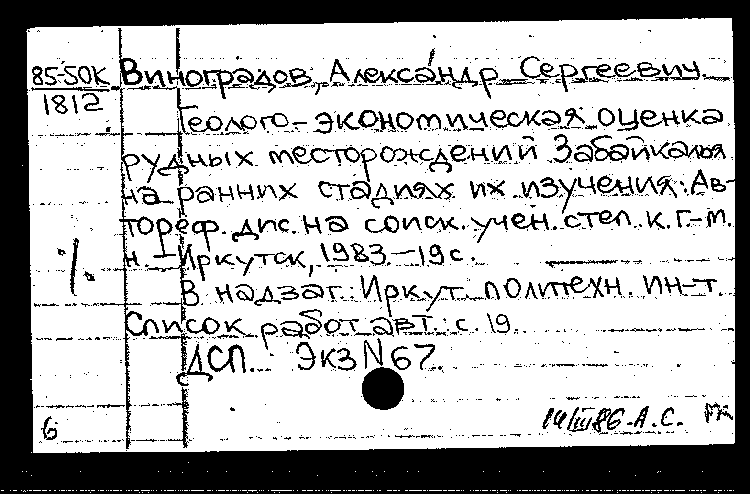 85-50К Виноградов, Александр Сергеевич
1812
Геолого-экономическая оценка
рудных месторождений Забайкалья
на ранних стадиях их изучения: Ав-
тореф. дис. на соиск. учен. степ. к. г.-м.
н. - Иркутск, 1983. - 19 с.
В надзаг.: Иркут. политехн. ин-т.
Список работ авт.: с. 19.
ДСП. Экз N 67
6
14/III 86 - А.С.